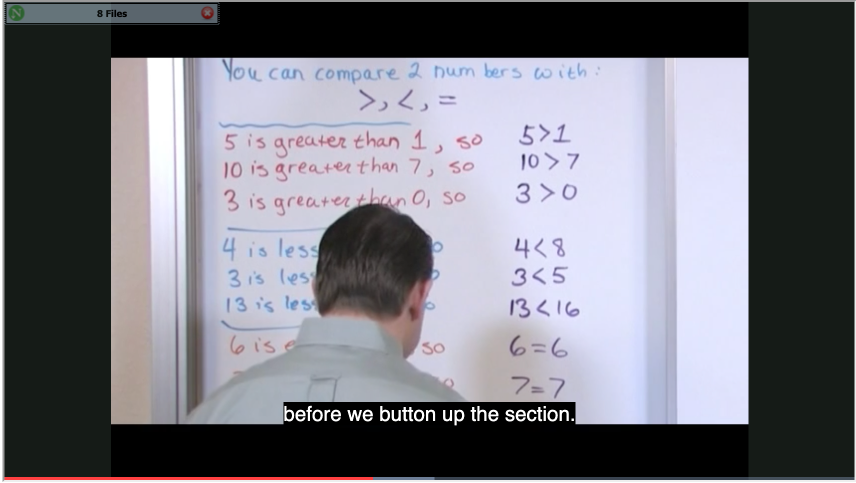 8 Files
You can compare 2 numbers with:
>, <, =
5 is greater than 1, so 5>1
10 is greater than 7, so 10>7
3 is greater than 0, so 3>0
4 is less 4<8
3 is less 3<5
13 is less 13<16
6 is so 6=6
7=7
before we button up the section.